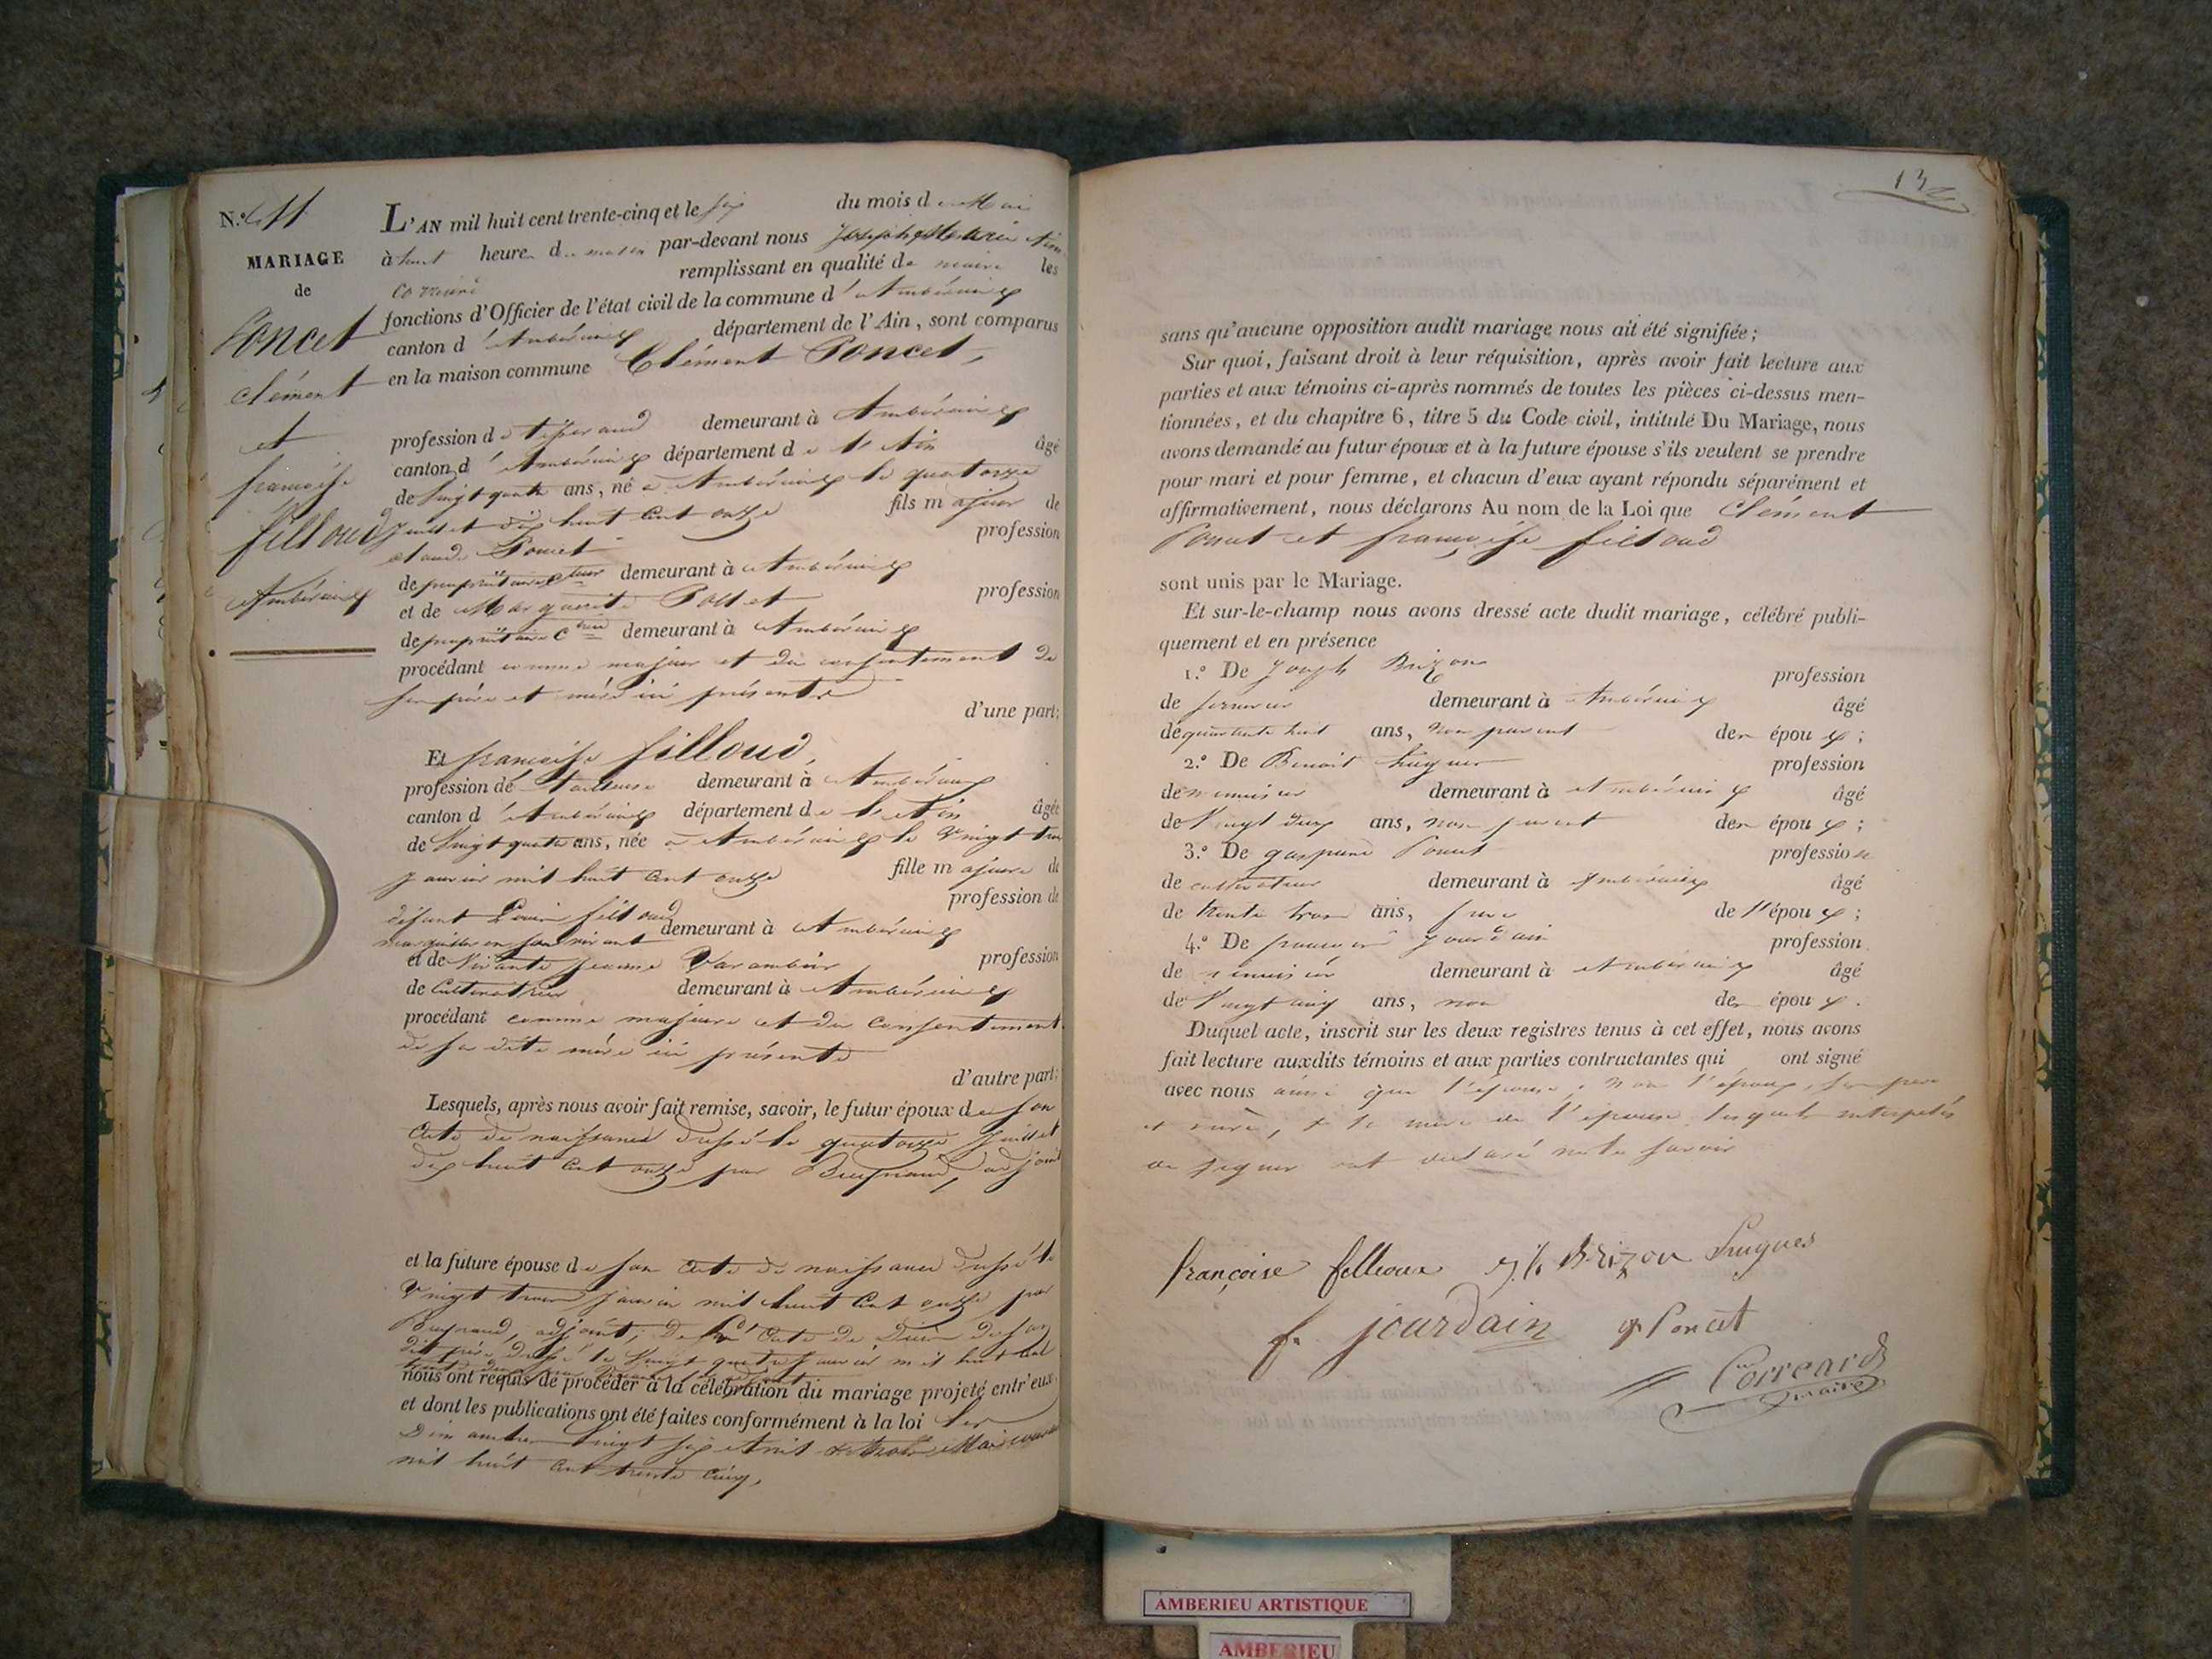 N.º 11
MARIAGE
de
Poncet
Clément
et
françoise
filloud
Ambérieux
L'AN mil huit cent trente-cinq et le six du mois de Mai
à huit heures du matin par-devant nous Joseph Marie
remplissant en qualité de maire les
fonctions d'Officier de l'état civil de la commune d'Ambérieux
canton d'Ambérieux département de l'Ain, sont comparus
en la maison commune Clément Poncet,
profession de tisserand demeurant à Ambérieux
canton d'Ambérieux département de l'Ain âgé
de Vingt quatre ans, né à Ambérieux le quatorze
Juillet dix huit cent onze fils majeur de
Poncet profession
de propriétaire demeurant à Ambérieux
et de Marguerite profession
de propriétaire demeurant à Ambérieux
procédant comme majeur et du consentement de
ses père et mère ici présents
d'une part;
Et françoise filloud,
profession de tailleuse demeurant à Ambérieux
canton d'Ambérieux département de l'Ain âgée
de Vingt quatre ans, née à Ambérieux le Vingt trois
Janvier mil huit cent onze fille majeure de
défunt Louis filloud profession de
en son vivant demeurant à Ambérieux
et de Vivante Varambon profession
de Cultivatrice demeurant à Ambérieux
procédant comme majeure et du consentement
de sa dite mère ici présente
d'autre part;
Lesquels, après nous avoir fait remise, savoir, le futur époux de son
acte de naissance dressé le quatorze Juillet
dix huit cent onze par adjoint
et la future épouse de son acte de naissance dressé le
Vingt trois janvier mil huit cent onze par
adjoint, De l'acte de Décès de son
dit père dressé le Vingt quatre janvier mil huit cent
nous ont requis de procéder à la célébration du mariage projeté entr'eux
et dont les publications ont été faites conformément à la loi les
Dimanches Vingt six Avril et trois Mai courant
mil huit cent trente cinq,
132
sans qu'aucune opposition audit mariage nous ait été signifiée;
Sur quoi, faisant droit à leur réquisition, après avoir fait lecture aux
parties et aux témoins ci-après nommés de toutes les pièces ci-dessus men-
tionnées, et du chapitre 6, titre 5 du Code civil, intitulé Du Mariage, nous
avons demandé au futur époux et à la future épouse s'ils veulent se prendre
pour mari et pour femme, et chacun d'eux ayant répondu séparément et
affirmativement, nous déclarons Au nom de la Loi que Clément
Poncet et françoise filloud
sont unis par le Mariage.
Et sur-le-champ nous avons dressé acte dudit mariage, célébré publi-
quement et en présence
1.º De Joseph Brizon profession
de demeurant à Ambérieux âgé
de quarante huit ans, non parent des époux;
2.º De Benoit hugues profession
de menuisier demeurant à Ambérieux âgé
de Vingt deux ans, non parent des époux;
3.º De Poncet profession
de cultivateur demeurant à Ambérieux âgé
de trente trois ans, frère de l'époux;
4.º De françois Jourdain profession
de menuisier demeurant à Ambérieux âgé
de Vingt cinq ans, non des époux.
Duquel acte, inscrit sur les deux registres tenus à cet effet, nous avons
fait lecture auxdits témoins et aux parties contractantes qui ont signé
avec nous ainsi que l'épouse, non l'époux, ses père
et mère, et la mère de l'épouse lesquels interpelés
de signer ont déclaré ne le savoir
françoise filloux j.h Brizon hugues
f. jourdain g Poncet
Correard
maire
AMBERIEU ARTISTIQUE
AMBERIEU